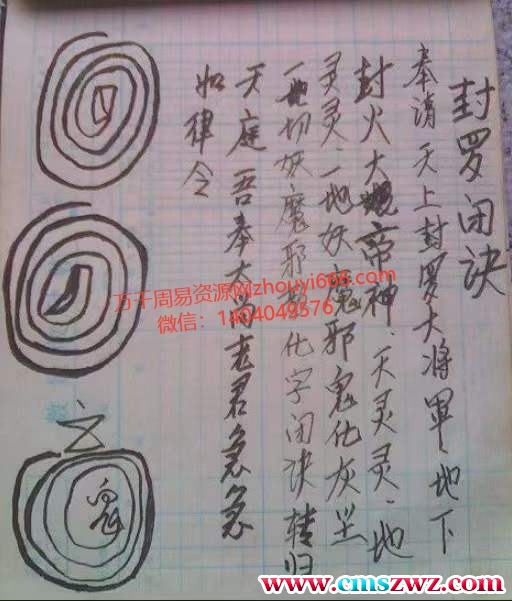 封罗闭诀
奉请天上封罗大将軍、地下
封火大帝神、天灵灵、地
灵灵、一地妖魔邪鬼化灰尘
一切妖魔邪 化字闭诀转归
天庭吾奉太 老君急急
如律令
鬼
万千周易资源网zhouyi666.com
微信：1404049576
www.cmszwz.com